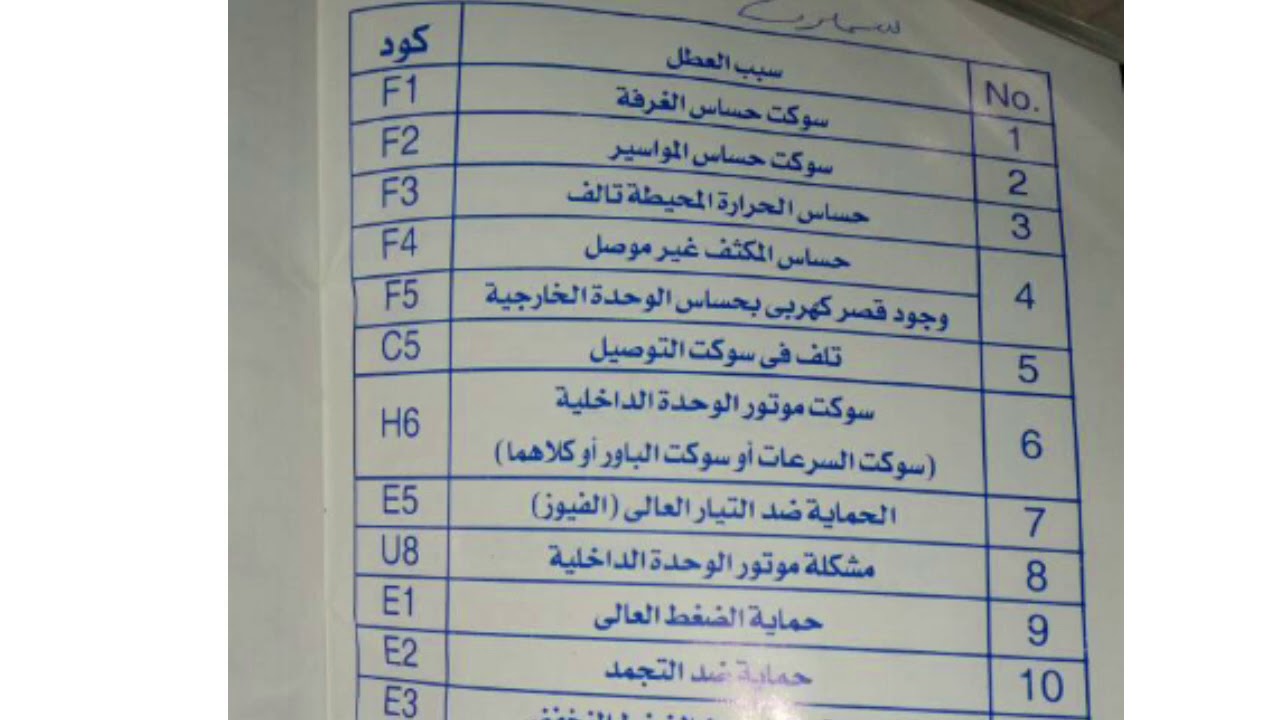 No. سبب العطل كود
1 سوكت حساس الغرفة F1
2 سوكت حساس المواسير F2
3 حساس الحرارة المحيطة تالف F3
4 حساس المكثف غير موصل F4
وجود قصر كهربى بحساس الوحدة الخارجية F5
5 تلف فى سوكت التوصيل C5
6 سوكت موتور الوحدة الداخلية H6
(سوكت السرعات أو سوكت الباور أو كلاهما)
7 الحماية ضد التيار العالى (الفيوز) E5
8 مشكلة موتور الوحدة الداخلية U8
9 حماية الضغط العالى E1
10 حماية ضد التجمد E2
E3